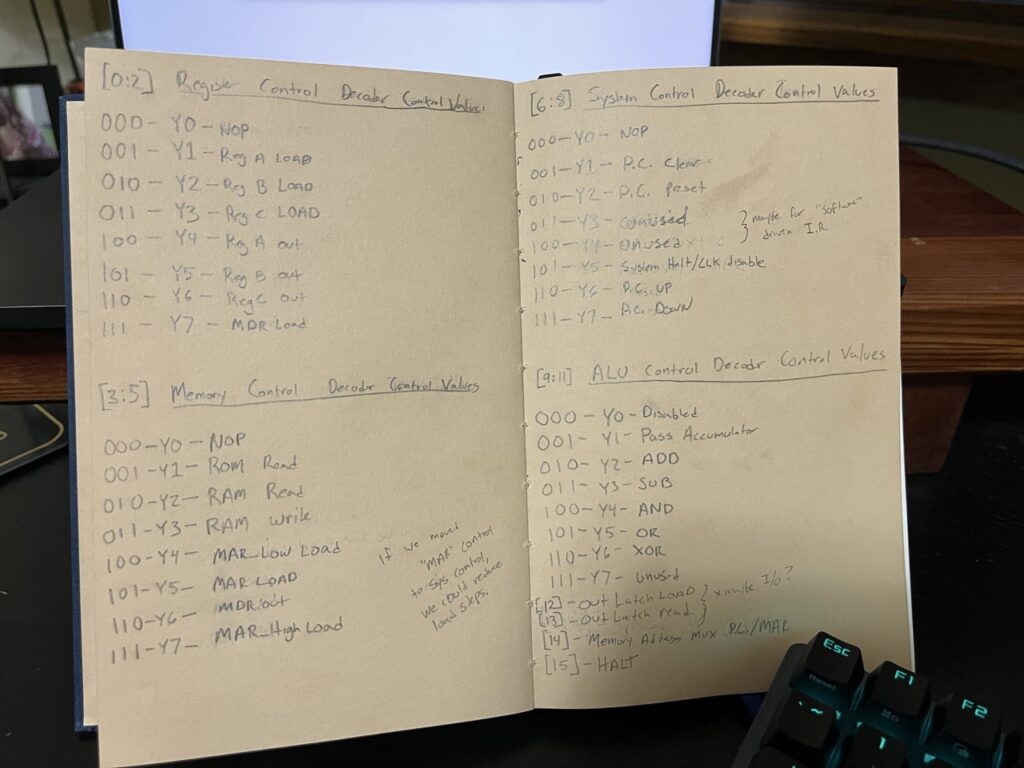 [0:2] Register Control Decoder Control Values
000 - Y0 - NOP
001 - Y1 - Reg A LOAD
010 - Y2 - Reg B LOAD
011 - Y3 - Reg C LOAD
100 - Y4 - Reg A out
101 - Y5 - Reg B out
110 - Y6 - Reg C out
111 - Y7 - MDR Load
[3:5] Memory Control Decoder Control Values
000 - Y0 - NOP
001 - Y1 - ROM Read
010 - Y2 - RAM Read
011 - Y3 - RAM write
100 - Y4 - MAR_Low Load
101 - Y5 - MAR LOAD
110 - Y6 - MDR out
111 - Y7 - MAR_High Load
If we moved
"MAR" control
to Sys control,
we could reduce
load steps.
[6:8] System Control Decoder Control Values
000 - Y0 - NOP
001 - Y1 - P.C. Clear
010 - Y2 - P.C. Preset
011 - Y3 - unused
100 - Y4 - unused
} maybe for "software"
driven I.R
101 - Y5 - System Halt/CLK disable
110 - Y6 - P.C. UP
111 - Y7 - P.C. DOWN
[9:11] ALU Control Decoder Control Values
000 - Y0 - Disabled
001 - Y1 - Pass Accumulator
010 - Y2 - ADD
011 - Y3 - SUB
100 - Y4 - AND
101 - Y5 - OR
110 - Y6 - XOR
111 - Y7 - unused
[12] - out Latch LOAD } * maybe I/O?
[13] - out Latch read }
[14] - Memory Address mux P.C./MAR
[15] - HALT
Esc
Reset
F1
F2
~
1